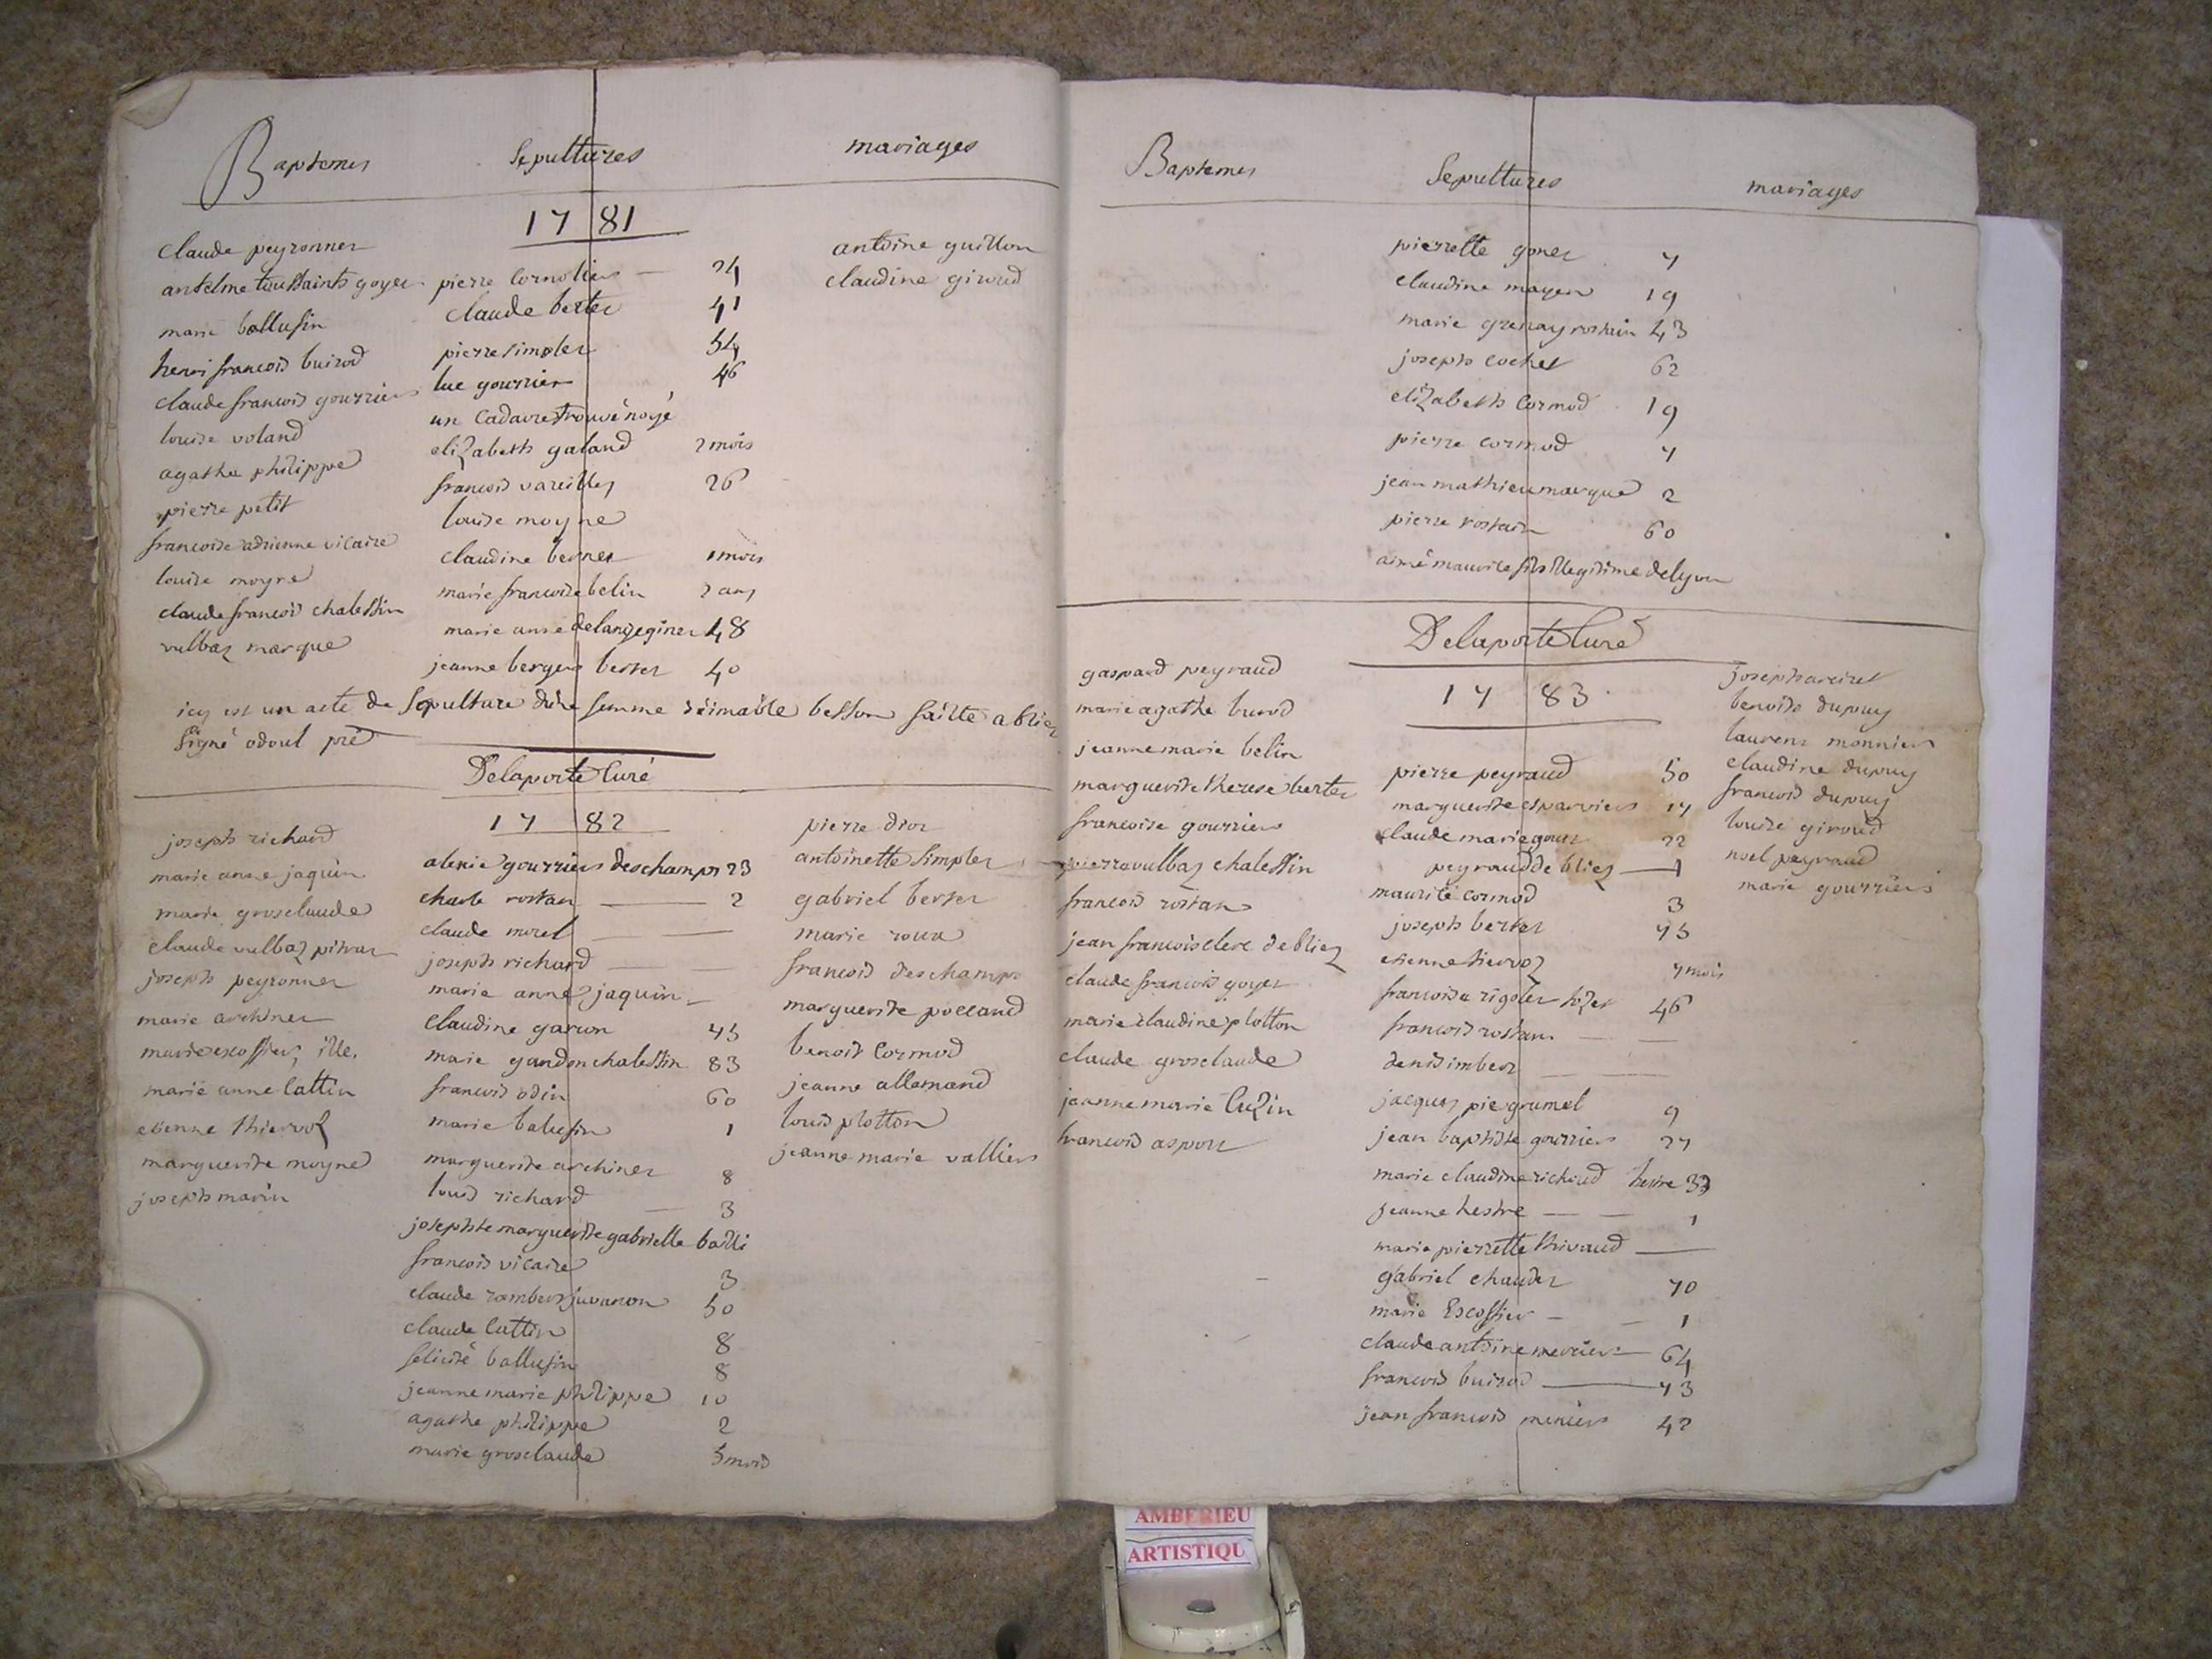 Baptemes
Sepultures
mariages
1781
claude peyronner
anselme toussaints goyer
marie ballusin
henri francois buirod
claude francois gourrier
louise voland
agathe philippe
pierre petit
francoise adrienne vicaire
louise moyne
claude francois chalessin
vulbaz marque
pierre cornoliers 24
claude berter 41
pierre simpler 54
luc gourrier 46
un cadavre trouvé noyé
elizabeth galand 2 mois
francois vareilles 26
louise moyne
claudine berner 1 mois
marie francoise belin 2 ans
marie anne giner 48
jeanne bergere berter 40
antoine guillon
claudine giroud
icy est un acte de sepulture d'une femme d'eimable besson faitte a bliez
signé odoul pré
Delaporte Curé
1782
joseph richard
marie anne jaquin
marie groselaude
claude vulbaz pitrar
joseph peyronner
marie archiner
marie escoffier ille.
marie anne lattin
etienne thiervoz
marguerite moyne
joseph marin
alexie gourriers deschamps 23
charle rostan 2
claude morel
joseph richard
marie anne jaquin
claudine garcon 45
marie gandon chalessin 83
francois odin 60
marie balusin 1
marguerite archiner 8
louis richard 3
josephte marguerite gabrielle bailli
francois vicaire 3
claude rambert juvanon 50
claude lattin 8
felicité ballusin 8
jeanne marie philippe 10
agathe philippe 2
marie groselaude 5 mois
pierre dror
antoinette simpler
gabriel berter
marie roux
francois deschamps
marguerite poccand
benoit cormod
jeanne allemand
louis plotton
jeanne marie valliers
Baptemes
Sepultures
mariages
pierrette goner 7
claudine mayen 19
marie grenay rostain 43
joseph cochet 62
elizabeth cormod 19
pierre cormod 7
jean mathieu marque 2
pierre rostain 60
aimé maurice fils illegitime de lyon
Delaporte Curé
1783
gaspard peyraud
marie agathe burod
jeanne marie belin
marguerite therese berter
francoise gourriers
pierre vulbaz chalessin
francois rostan
jean francois clerc de bliez
claude francois goyer
marie claudine plotton
claude groselaude
jeanne marie luzin
francois aspore
pierre peyraud 50
marguerite esparviers 17
claude marie gour 22
peyraud de bliez 1
maurice cormod 3
joseph berter 75
etienne tiervoz 7 mois
francoise rigoler 46
francois rostan
denis imbert
jacques piegrumel 9
jean baptiste gourriers 27
marie claudine richard hestre 33
jeanne hestre 1
marie pierrette thivaud
gabriel chauder 70
marie Escoffier 1
claude antoine merciers 64
francois buirod 73
jean francois meniers 42
joseph arcizet
benoite dupuy
laurent monniers
claudine dupuy
francois dupuy
louise giroud
noel peyraud
marie gourriers
AMBERIEU
ARTISTIQU